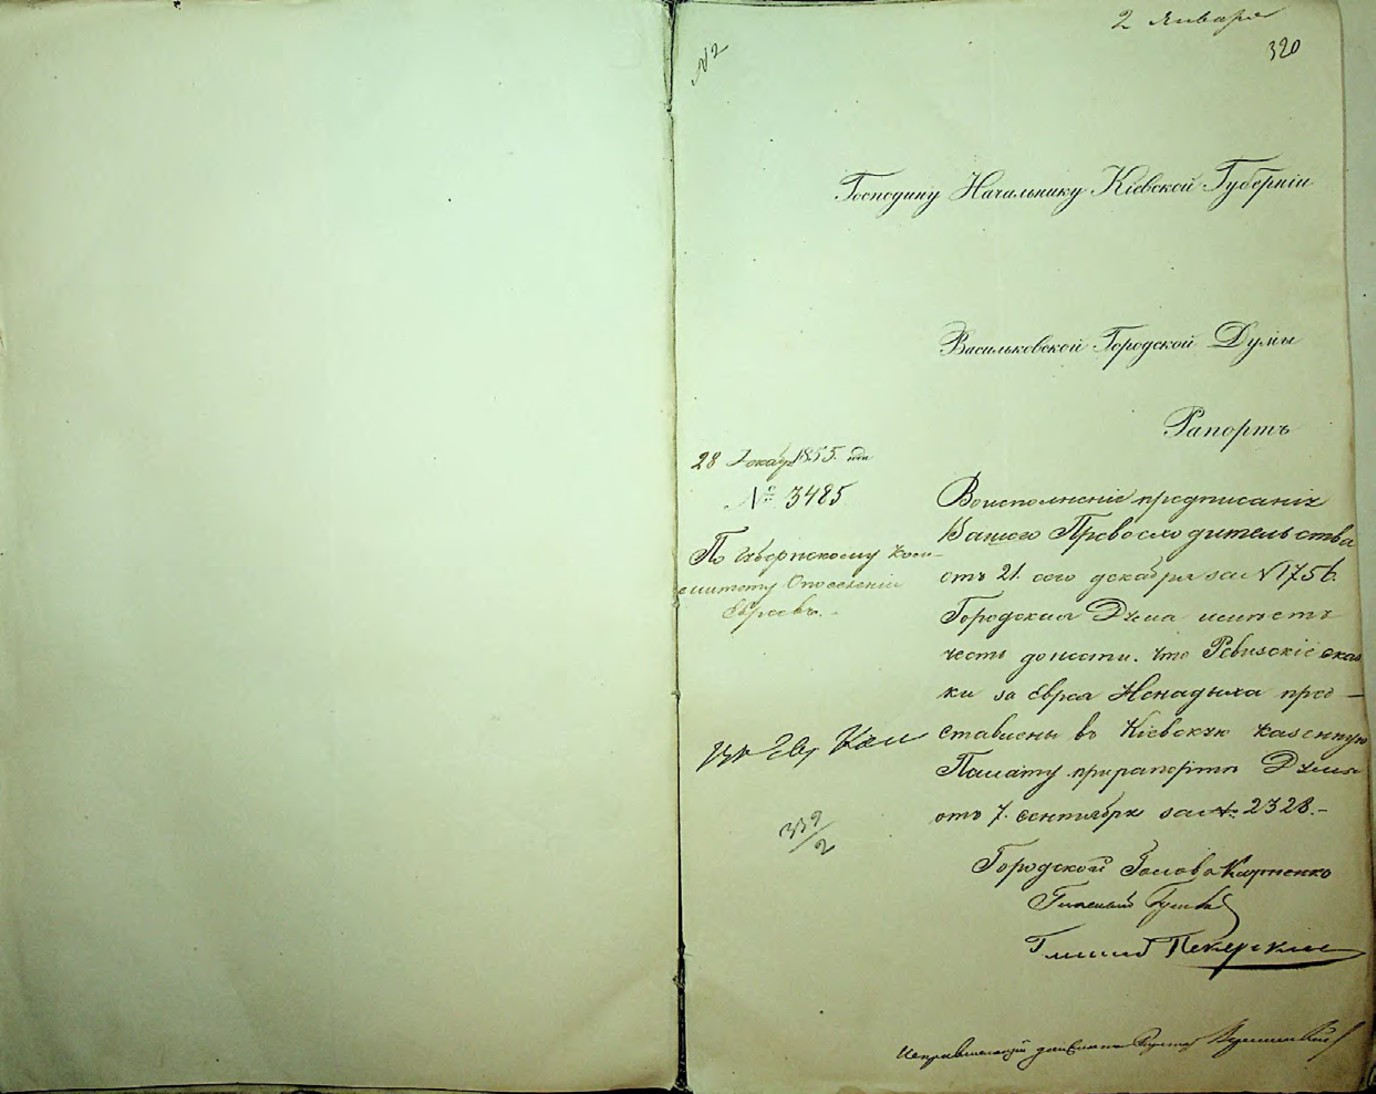 2 Января
320
№ 2
Господину Начальнику Кіевской Губерніи
Васильковской Городской Думы
Рапортъ
28 Декабр 1855. года
№ 3485
По Губернскому Ком-
митету О поселеніи
Евреевъ.-
Воисполненіе предписанія
Вашего Превосходительства
отъ 21. сего декабря за № 1756.
Городская Дума имѣетъ
честь донести. что Ревизскіе сказ
ки за Еврея Ненадыха пред-
ставлены въ Кіевскую Казенную
Палату прирапортѣ Думы
отъ 7. сентября за № 2328.-
339/2
Городской Голова Карпенко
Гласный
Гласный
Исправляющій должность